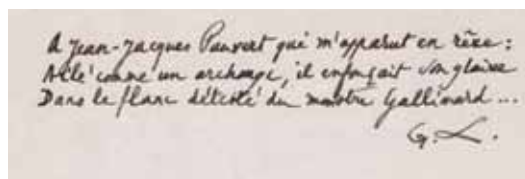 A Jean-Jacques Pauvert qui m'apparut en rêve :
Ailé comme un archange, il enfonçait son glaive
Dans le flanc détesté du monstre Gallimard ...
G. L.